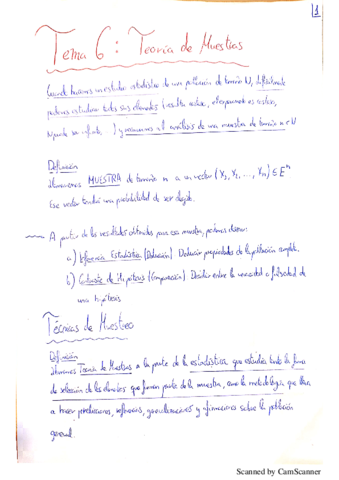 1
Tema 6: Teoría de Muestras
Cuando hacemos un estudio estadístico de una población de tamaño N, difícilmente
podemos estudiar todos sus elementos (resulta costoso,
N puede ser infinito, ...) y recurrimos al análisis de una muestra de tamaño n < N
Definición
Llamaremos MUESTRA de tamaño n a un vector (X₁, X₂, ..., Xₙ) ∈ Eⁿ
Ese vector tendrá una probabilidad de ser elegido.
A partir de los resultados obtenidos para esa muestra, podemos hacer:
a) Inferencia Estadística (Deducción) Deducir propiedades de la población completa.
b) Contraste de Hipótesis (Comparación) Decidir sobre la veracidad o falsedad de
una hipótesis
Técnicas de Muestreo
Definición
Llamaremos Teoría de Muestras a la parte de la estadística que estudia tanto la forma
de selección de los elementos que forman parte de la muestra, como la metodología, que lleva
a hacer predicciones, inferencias, y afirmaciones sobre la población
general.
Scanned by CamScanner